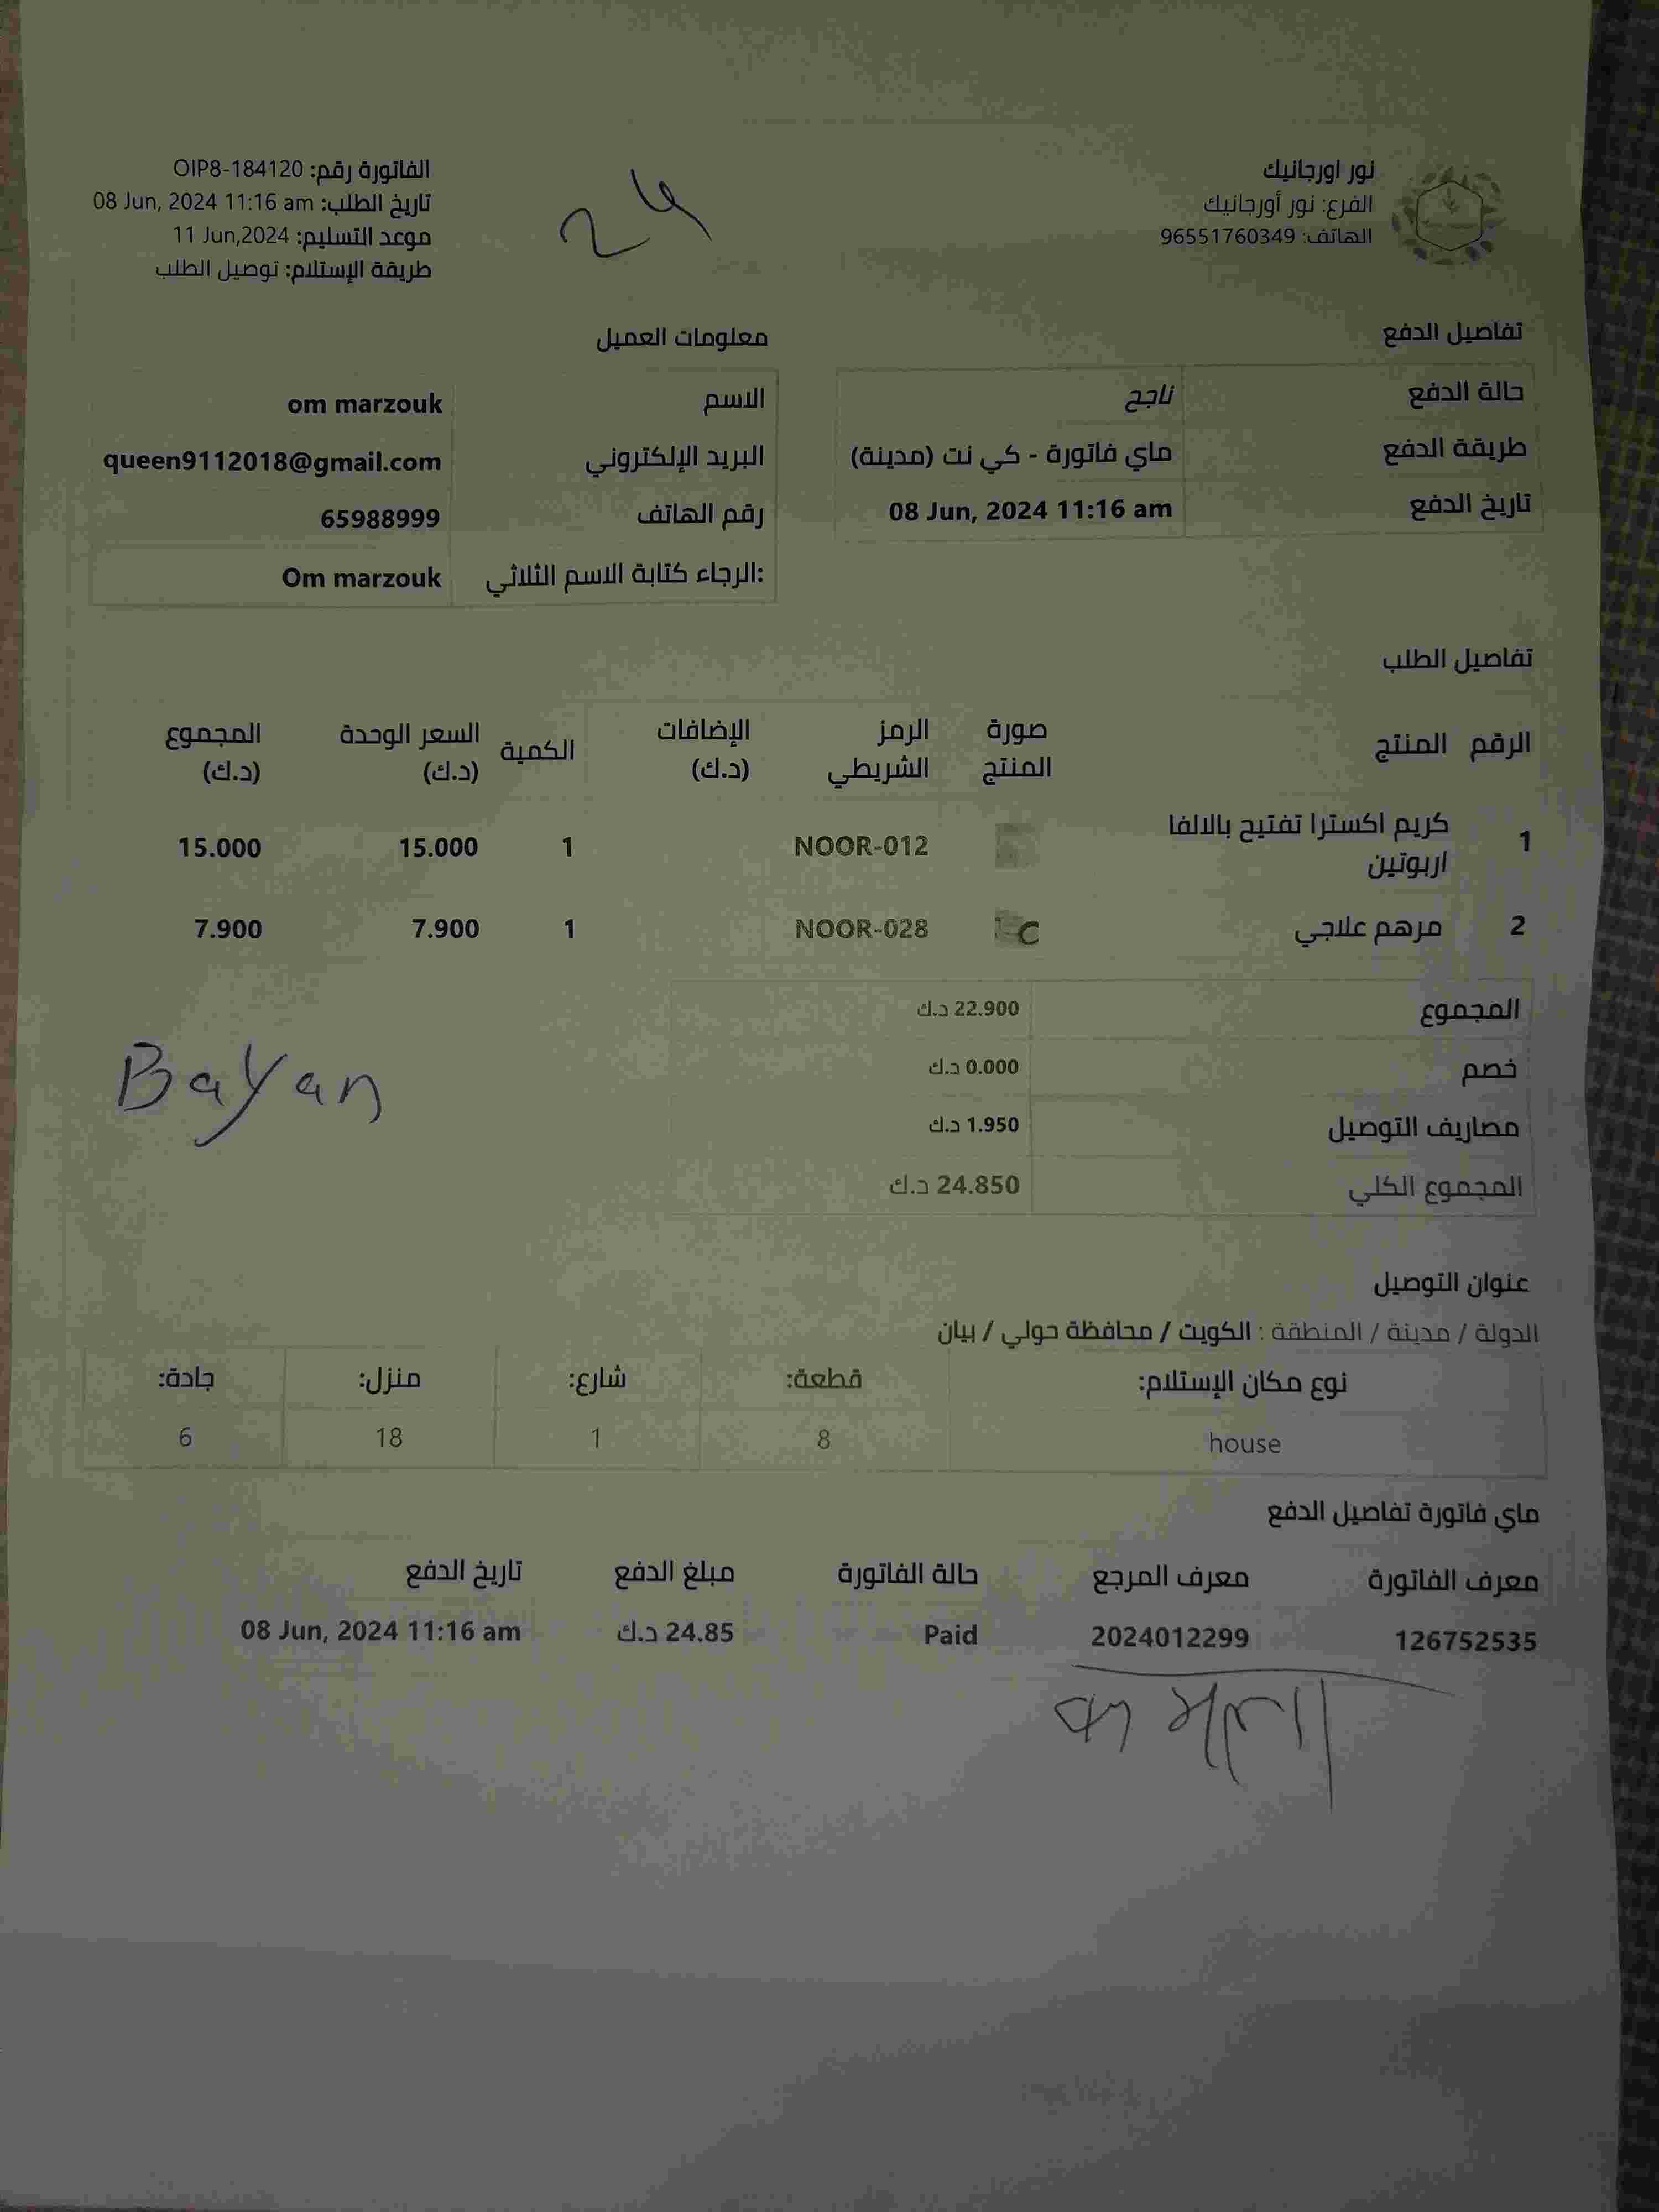 نور اورجانيك
الفرع: نور أورجانيك
الهاتف: 96551760349
الفاتورة رقم: OIP8-184120
تاريخ الطلب: 08 Jun, 2024 11:16 am
موعد التسليم: 11 Jun,2024
طريقة الإستلام: توصيل الطلب
تفاصيل الدفع
حالة الدفع ناجح
طريقة الدفع ماي فاتورة - كي نت (مدينة)
تاريخ الدفع 08 Jun, 2024 11:16 am
معلومات العميل
الاسم om marzouk
البريد الإلكتروني queen9112018@gmail.com
رقم الهاتف 65988999
:الرجاء كتابة الاسم الثلاثي Om marzouk
تفاصيل الطلب
الرقم المنتج صورة المنتج الرمز الشريطي الإضافات (د.ك) الكمية السعر الوحدة (د.ك) المجموع (د.ك)
1 كريم اكسترا تفتيح بالالفا اربوتين NOOR-012 1 15.000 15.000
2 مرهم علاجي NOOR-028 1 7.900 7.900
المجموع 22.900 د.ك
خصم 0.000 د.ك
مصاريف التوصيل 1.950 د.ك
المجموع الكلي 24.850 د.ك
Bayan
عنوان التوصيل
الدولة / مدينة / المنطقة : الكويت / محافظة حولي / بيان
نوع مكان الإستلام: قطعة: شارع: منزل: جادة:
house 8 1 18 6
ماي فاتورة تفاصيل الدفع
معرف الفاتورة معرف المرجع حالة الفاتورة مبلغ الدفع تاريخ الدفع
126752535 2024012299 Paid 24.85 د.ك 08 Jun, 2024 11:16 am